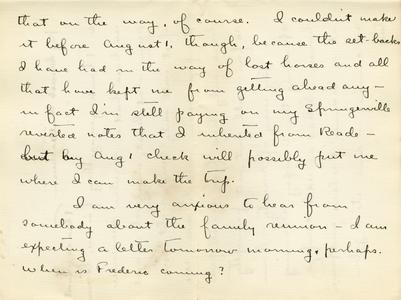 that on the way, of course. I couldn't make
it before August 1, though, because the set-backs
I have had in the way of lost horses and all
that have kept me from getting ahead any—
in fact I'm still paying on my Springerville
reverted notes that I inherited from Reade—
but my Aug 1 check will possibly put me
where I can make the trip.
I am very anxious to hear from
somebody about the family reunion — I am
expecting a letter tomorrow morning, perhaps.
When is Frederic coming?